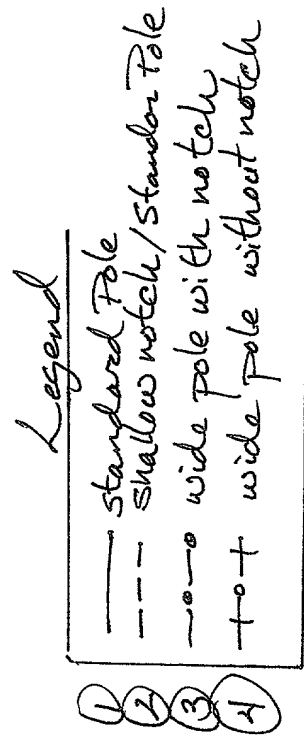 Legend
① —— standard Pole
② – – – shallow notch/standar Pole
③ –o–o wide pole with notch
④ +o+ wide pole without notch